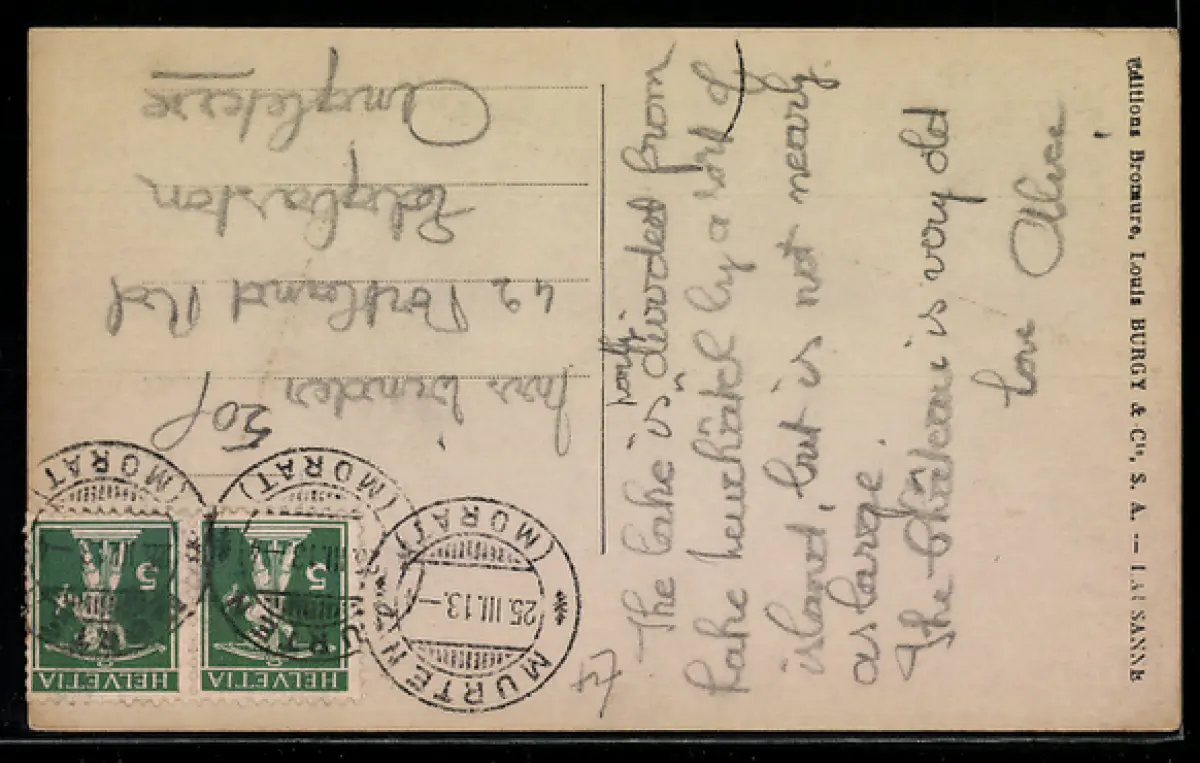 The lake is partly divided from
Lake Neuchâtel by a sort of
island, but is not nearly
as large.
The Château is very old
Love Alice
Editions Bromure, Louis BURGY & Cie, S. A. — LAUSANNE
Miss Binder
42 Portland Rd
Edgbaston
Angleterre
50f
57
HELVETIA
5
HELVETIA
5
MURTEN
(MORAT)
25.III.13.—
MURTEN
(MORAT)
(MORAT)